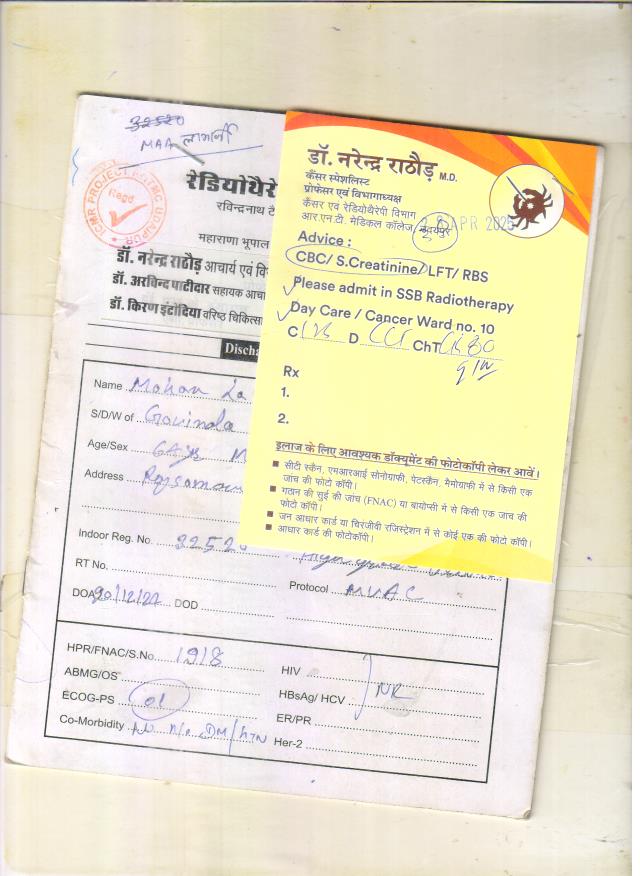 32520
MAA लाभार्थी
ICMR PROJECT RNTMC UDAIPUR
Regd
रेडियोथैरे
रविन्द्रनाथ टै
महाराणा भूपाल
डॉ. नरेन्द्र राठौड़ आचार्य एवं वि
डॉ. अरविन्द पाटीदार सहायक आचा
डॉ. किरण इंटोदिया वरिष्ठ चिकित्सा
Discha
Name Mohan La
S/D/W of Govinda
Age/Sex M
Address Rajsaman
Indoor Reg. No. 32520
RT No.
Protocol MVAC
DOA DOD
HPR/FNAC/S.No. 1918
HIV
ABMG/OS
HBsAg/ HCV NR
ECOG-PS 01
ER/PR
Co-Morbidity No h/o DM/HTN
Her-2
डॉ. नरेन्द्र राठौड़ M.D.
कैंसर स्पेशलिस्ट
प्रोफेसर एवं विभागाध्यक्ष
कैंसर एव रेडियोथैरेपी विभाग
आर.एन.टी. मेडिकल कॉलेज, उदयपुर
APR 2025
Advice :
CBC/ S.Creatinine/ LFT/ RBS
Please admit in SSB Radiotherapy
Day Care / Cancer Ward no. 10
C D ChT
Rx
1.
2.
इलाज के लिए आवश्यक डॉक्यूमेंट की फोटोकॉपी लेकर आवें।
सीटी स्कैन, एमआरआई सोनोग्राफी, पेटस्कैन, मैमोग्राफी में से किसी एक
जांच की फोटो कॉपी।
गठान की सुई की जांच (FNAC) या बायोप्सी में से किसी एक जांच की
फोटो कॉपी।
जन आधार कार्ड या चिरजीवी रजिस्ट्रेशन में से कोई एक की फोटो कॉपी।
आधार कार्ड की फोटोकॉपी।